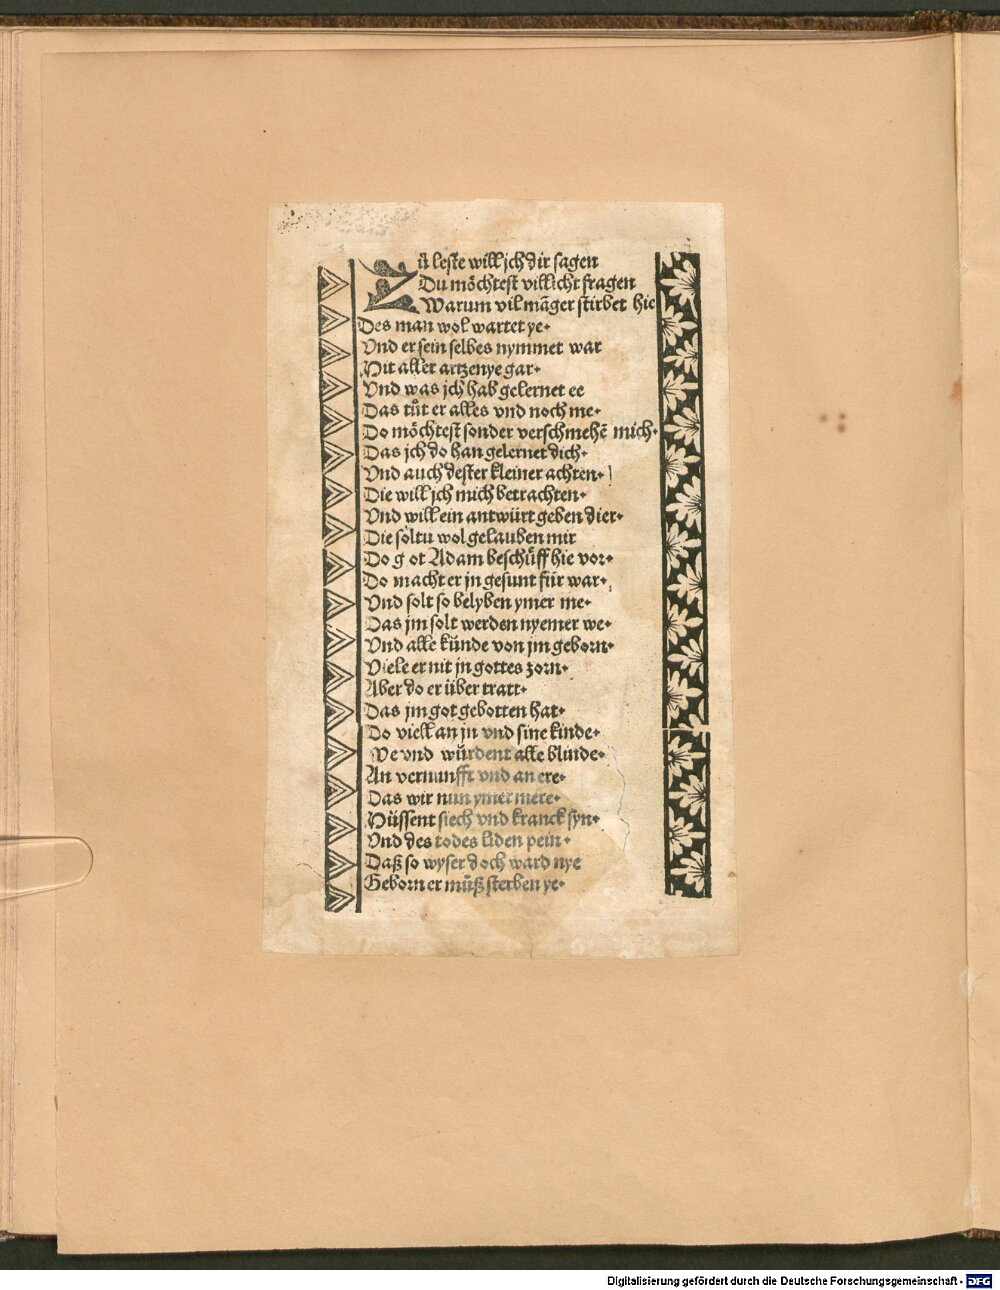 Zů leste will jch dir sagen
Du möchtest villicht fragen
Warum vil mãger stirbet hie
Des man wol wartet ye.
Vnd er sein selbes nymmet war
Mit aller artzenye gar.
Vnd was jch hab gelernet ee
Das tůt er alles vnd noch me.
Do möchtest sonder verschmehẽ mich.
Das jch do han gelernet dich.
Vnd auch dester kleiner achten.
Die will jch mich betrachten.
Vnd will ein antwürt geben dier.
Die soltu wol gelauben mir
Do g ot Adam beschůff hie vor.
Do macht er jn gesunt für war.
Vnd solt so belyben ymer me.
Das jm solt werden nyemer we.
Vnd alle künde von jm geborn.
Viele er nit jn gottes zorn.
Aber do er über tratt.
Das jm got gebotten hat.
Do viell an jn vnd sine kinde.
We vnd würdent alle blinde.
An vernunfft vnd an ere.
Das wir nun ymer mere.
Müssent siech vnd kranck syn.
Vnd des todes liden pein.
Daß so wyser doch ward nye
Geborn er můß sterben ye.
Digitalisierung gefördert durch die Deutsche Forschungsgemeinschaft - DFG